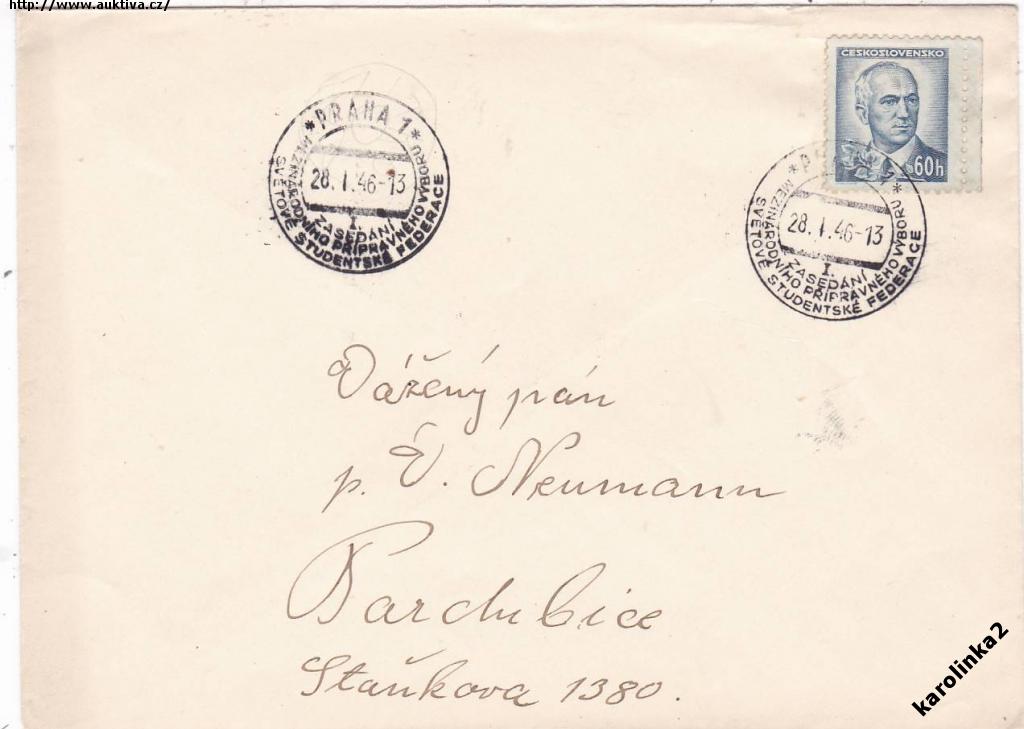 http://www.auktiva.cz/
ČESKOSLOVENSKO
60h
*PRAHA 1*
28. I. 46-13
I.
ZASEDÁNÍ
MEZINÁRODNÍHO PŘÍPRAVNÉHO VÝBORU
SVĚTOVÉ STUDENTSKÉ FEDERACE
*P
28. I. 46-13
I.
ZASEDÁNÍ
MEZINÁRODNÍHO PŘÍPRAVNÉHO VÝBORU
SVĚTOVÉ STUDENTSKÉ FEDERACE
Vážený pán
p. V. Neumann
Pardubice
Staňkova 1380.
karolinka2